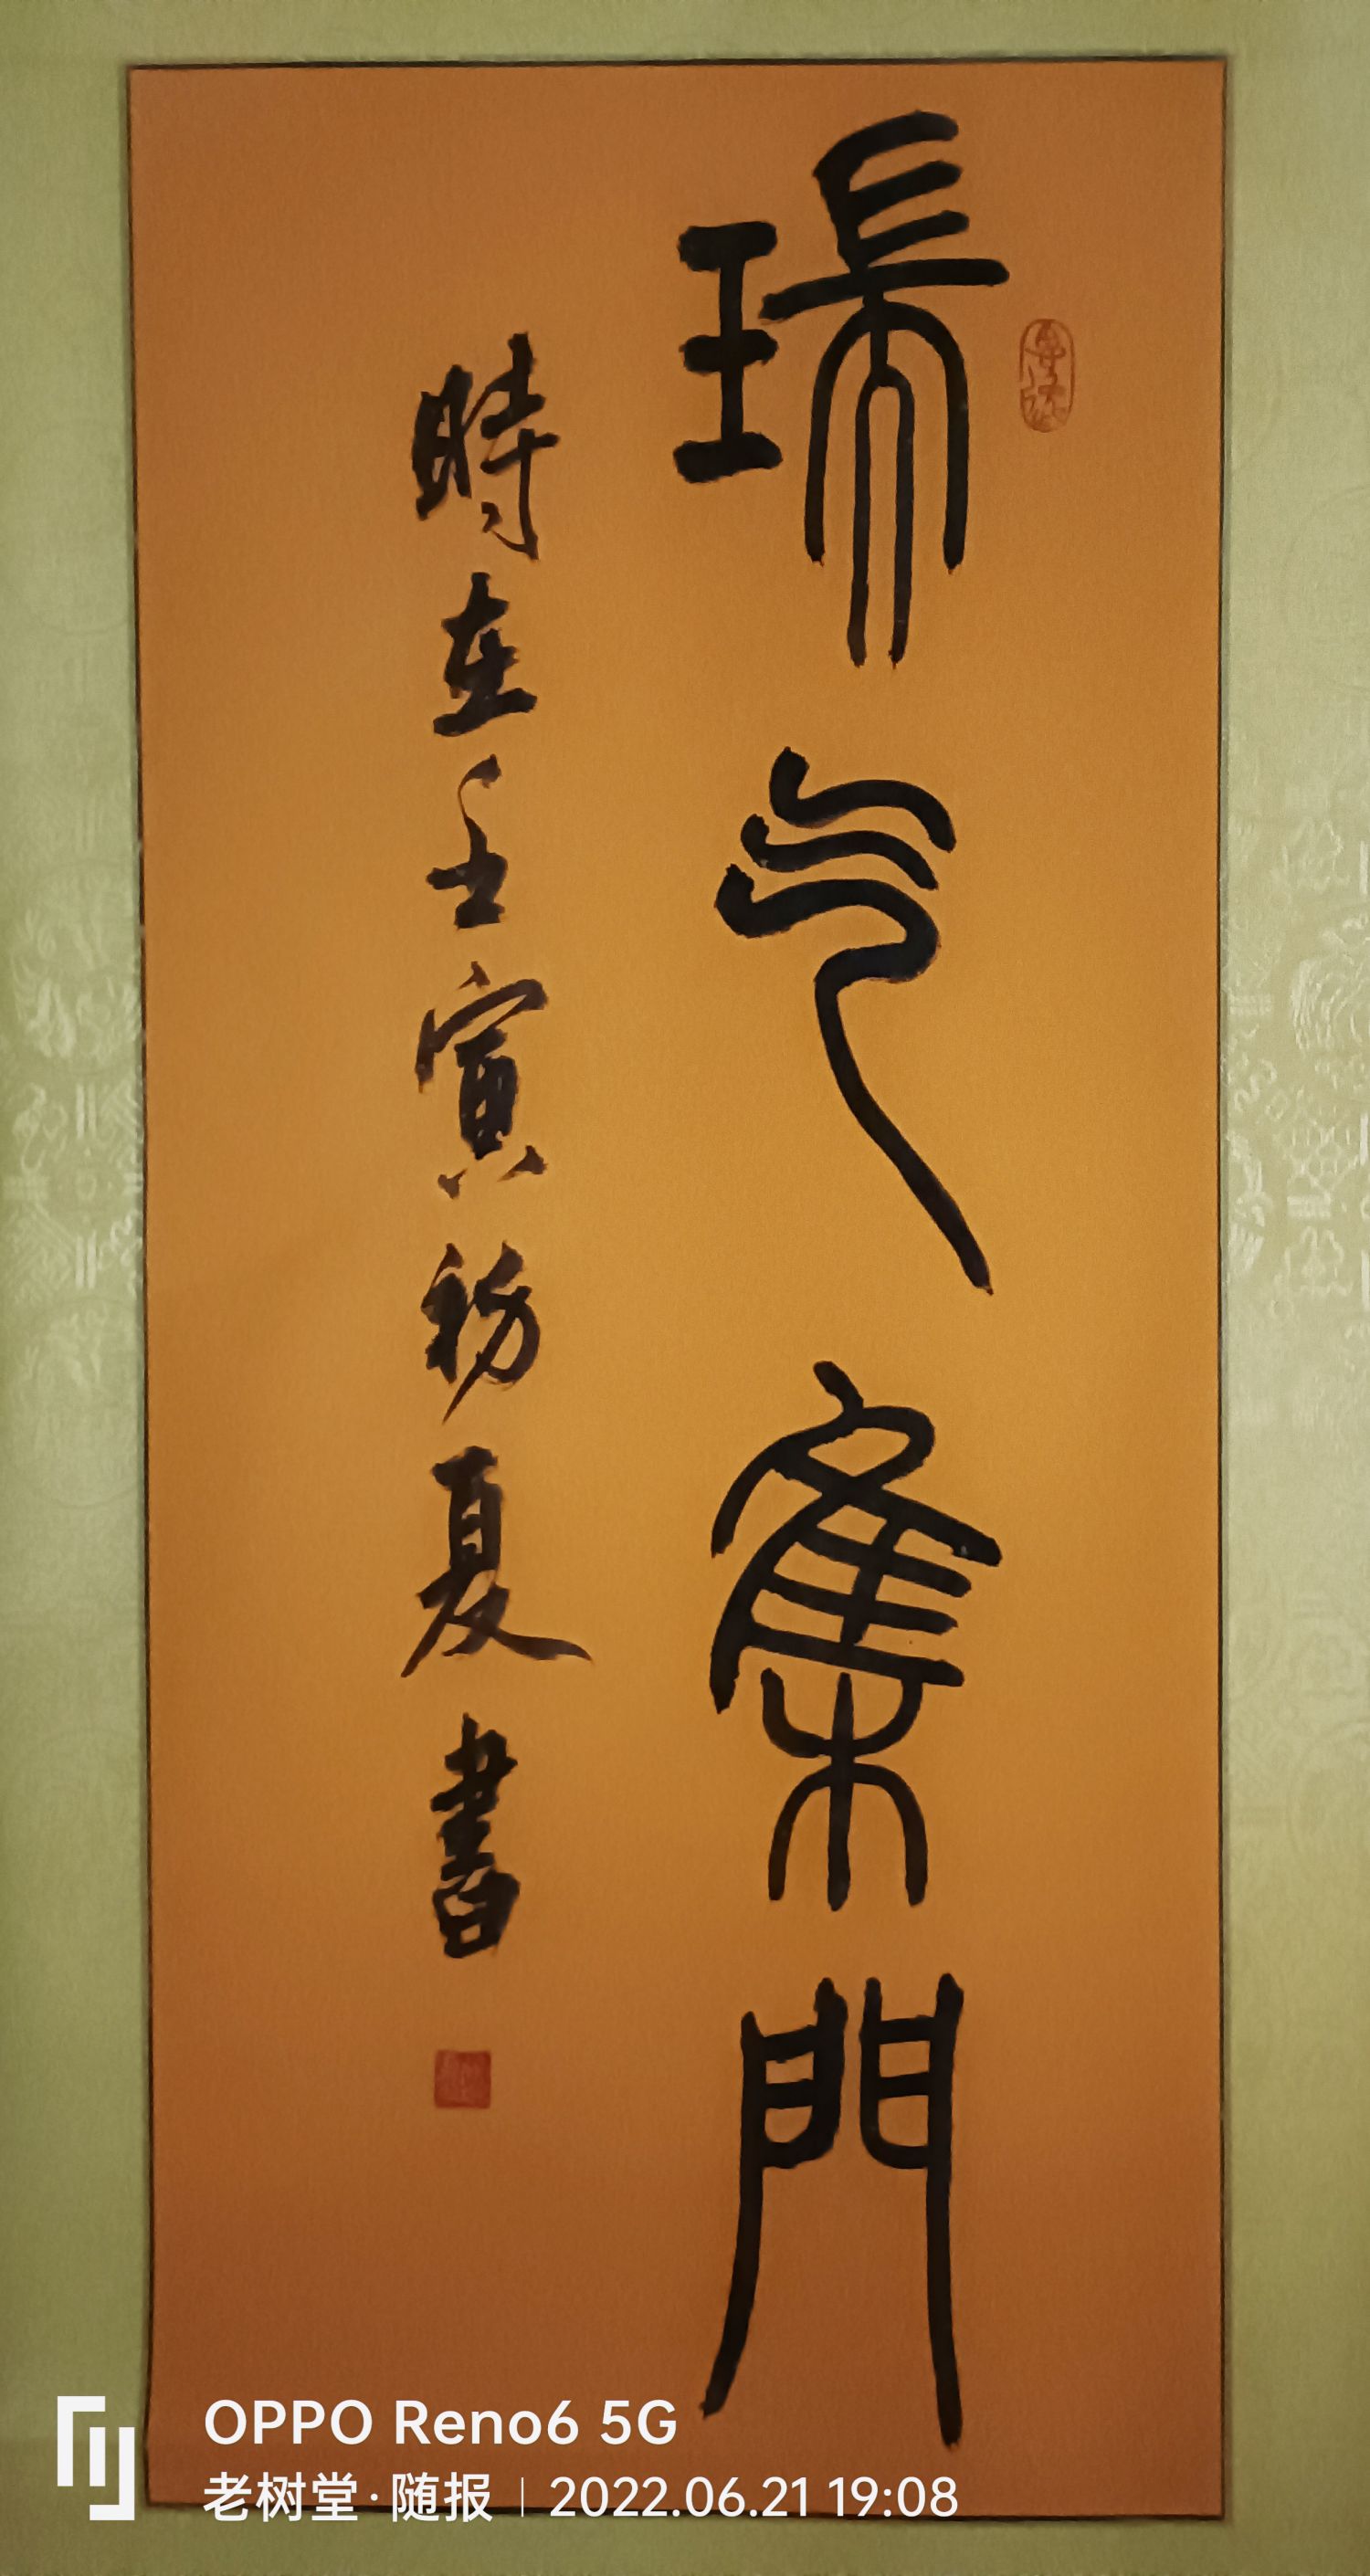 瑞气集門
時在壬寅初夏書
OPPO Reno6 5G
老树堂·随报 | 2022.06.21 19:08